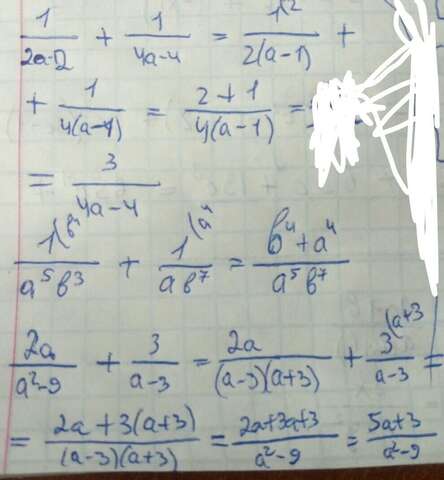 1/(2a-2) + 1/(4a-4) = 1^(2/(2(a-1)) +
+ 1/(4(a-1)) = (2+1)/(4(a-1)) =
= 3/(4a-4)
1^(b⁴/(a⁵b³) + 1^(a⁴/(ab⁷) = (b⁴+a⁴)/(a⁵b⁷)
2a/(a²-9) + 3/(a-3) = 2a/((a-3)(a+3)) + 3^(a+3/(a-3) =
= (2a+3(a+3))/((a-3)(a+3)) = (2a+3a+3)/(a²-9) = (5a+3)/(a²-9)